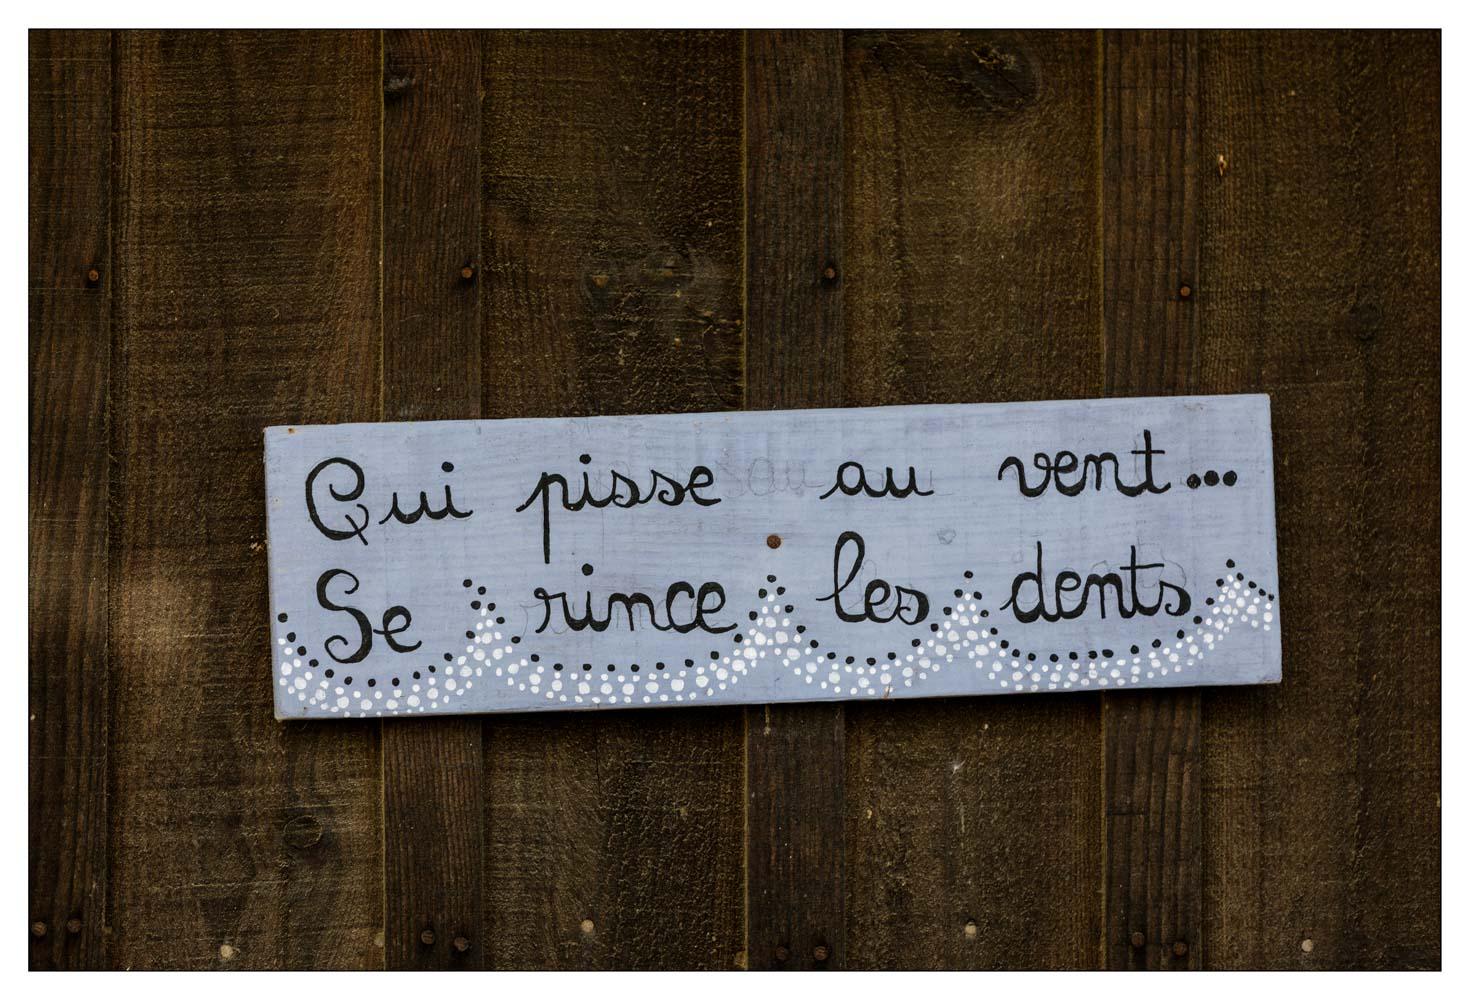 Qui pisse au vent...
Se rince les dents